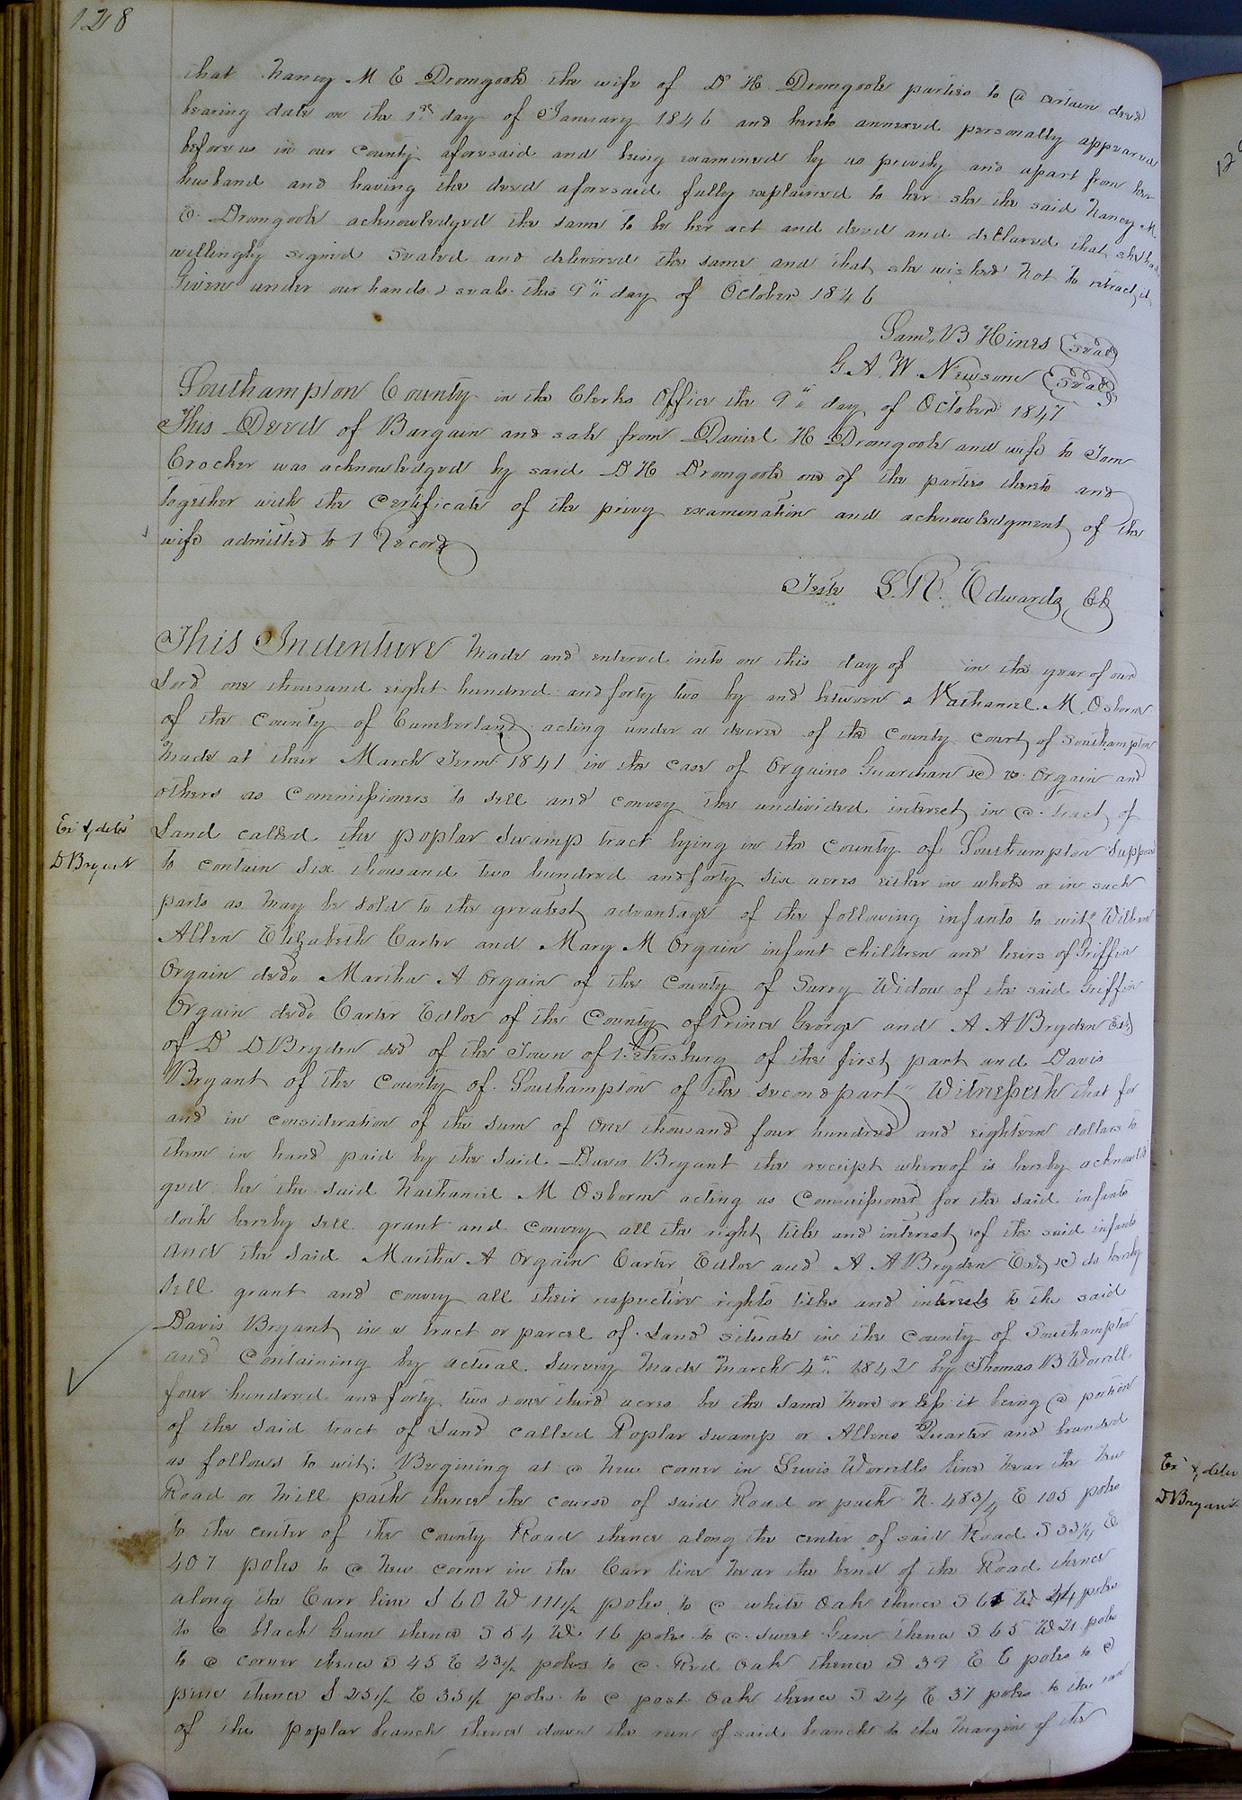 128
that Nancy M E Dromgoole the wife of D H Dromgoole parties to a certain deed
bearing date on the 1st day of January 1846 and hereto annexed personally appeared
before us in our County aforesaid and being examined by us privily and apart from her
husband and having the deed aforesaid fully explained to her she the said Nancy M
E. Dromgoole acknowledged the same to be her act and deed and declared that she had
willingly signed sealed and delivered the same and that she wished not to retract it
Given under our hands & seals this 9th day of October 1846
Saml. B Hines (Seal)
G A. W. Newsom (Seal)
Southampton County in the Clerks Office the 9th day of October 1847
This Deed of Bargain and sale from Daniel H Dromgoole and wife to
Crocker was acknowledged by said D H Dromgoole one of the parties thereto and
together with the Certificate of the privy examination and acknowledgment of the
wife admitted to Record
Teste L. R. Edwards Ck
This Indenture made and entered into on this day of in the year of our
Lord one thousand eight hundred and forty two by and between Nathaniel M. Osborne
of the County of Cumberland acting under a decree of the County court of Southampton
made at their March Term 1841 in the case of Orgains Guardian &c vs. Orgain and
others as Commissioners to sell and convey the undivided interest in a tract of
Land called the poplar Swamp tract lying in the County of Southampton
to contain six thousand two hundred and forty six acres either in whole or in such
parts as may be sold to the greatest advantage of the following infants to wit,
Allen Elizabeth Carter and Mary M Orgain infant children and heirs of Griffin
Orgain decd. Martha A Orgain of the County of Surry Widow of the said Griffin
Orgain decd. Carter Edloe of the County of Prince George and A A Bryden Exr)
of D D Bryden decd of the Town of Petersburg of the first part and Davis
Bryant of the County of Southampton of the second part Witnesseth that for
and in consideration of the sum of One thousand four hundred and eighteen dollars to
them in hand paid by the said Davis Bryant the receipt whereof is hereby acknowled
ged he the said Nathaniel M Osborne acting as Commissioner for the said infants
doth hereby sell grant and convey all the right title and interest of the said infants
and the said Martha A Orgain Carter Edloe and A A Bryden Exr &c do hereby
sell grant and convey all their respective rights titles and interests to the said
Davis Bryant in a tract or parcel of Land situate in the County of Southampton
and containing by actual survey made March 4th 1842 by Thomas B Worrell
four hundred and forty two & one third acres be the same more or less it being a portion
of the said tract of Land called Poplar swamp or Allens Quarter and bounded
as follows to wit: Begining at a new corner in Lewis Worrells line near the new
Road or Mill path thence the course of said Road or path N. 48 3/4 E 105 poles
to the center of the County Road thence along the center of said Road S 33 1/4 E
407 poles to a new corner in the Carr line near the bend of the Road thence
along the Carr line S 60 W 111 1/2 poles to a white Oak thence S 61 W 44 poles
to a black Gum thence S 54 W. 16 poles to a Sweet Gum thence S 65 W 21 poles
to a corner thence S 45 E 43 1/2 poles to a Red Oak thence S 39 E poles to a
pine thence S 25 1/2 E 35 1/2 poles to a post Oak thence S 24 E 37 poles to the run
of the poplar branch thence down the run of said branch to the margin of the
Ex & deld
D Bryant
Ex & deld
D Bryant